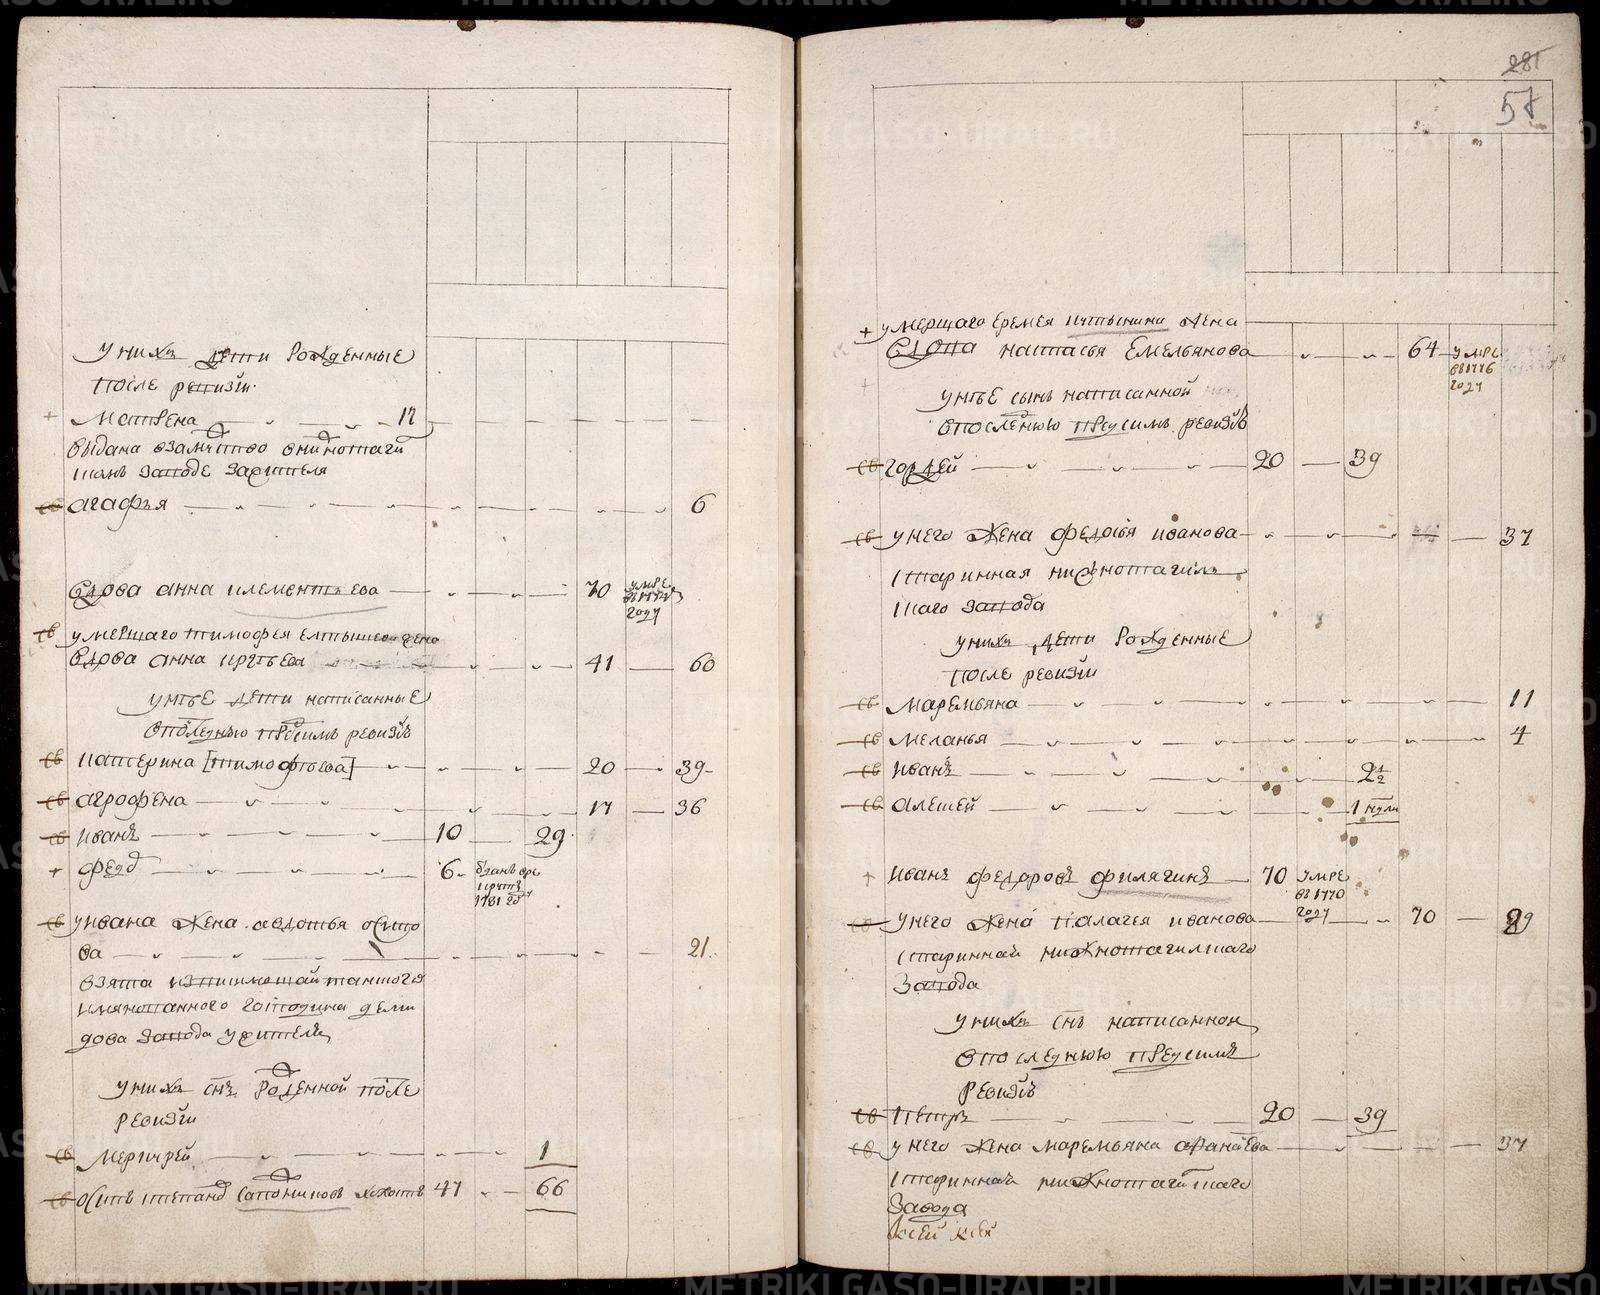 уних дети рожденные
после ревизiи
Матрена 17
выдана взамужство внижнотаги
скомъ заводе зажителя
св агафья 6
вдова анна клементьева 70 умре
году
св умершаго тимофея елтышева жена
вдова анна 41 60
унее дети написанные
впоследнью предсимъ ревизiю
св катерина [тимофеева] 20 39
св агрофена 17 36
св иванъ 10 29
федоръ 6
1781 году
св уивана жена авдотья осипо
ва 21
взята
имянованного господина деми
дова завода ужителя
уних снъ рожденной после
ревизiи
св Меркурей 1
св осипъ степановъ сапожниковъ холостъ 47 66
281
57
умершаго еремея жена
вдова настасья Емельянова 64 умре
в 1776
году
унее сынъ написанной
впоследнью предсимъ ревизiю
св гордей 20 39
св унего жена федосья иванова 37
старинная нижнотагилс
каго завода
уних дети рожденные
после ревизiи
св маремьяна 11
св меланья 4
св иванъ 2½
св алексей 1 нули
иванъ федоровъ филягинъ 70 умре
в 1770
году
унего жена палагея иванова 70 89
старинной нижнотагилскаго
завода
уних снъ написанной
впоследнью предсимъ
ревизiю
св петръ 20 39
св унего жена маремьяна афанасева 37
старинная нижнотагилскаго
завода